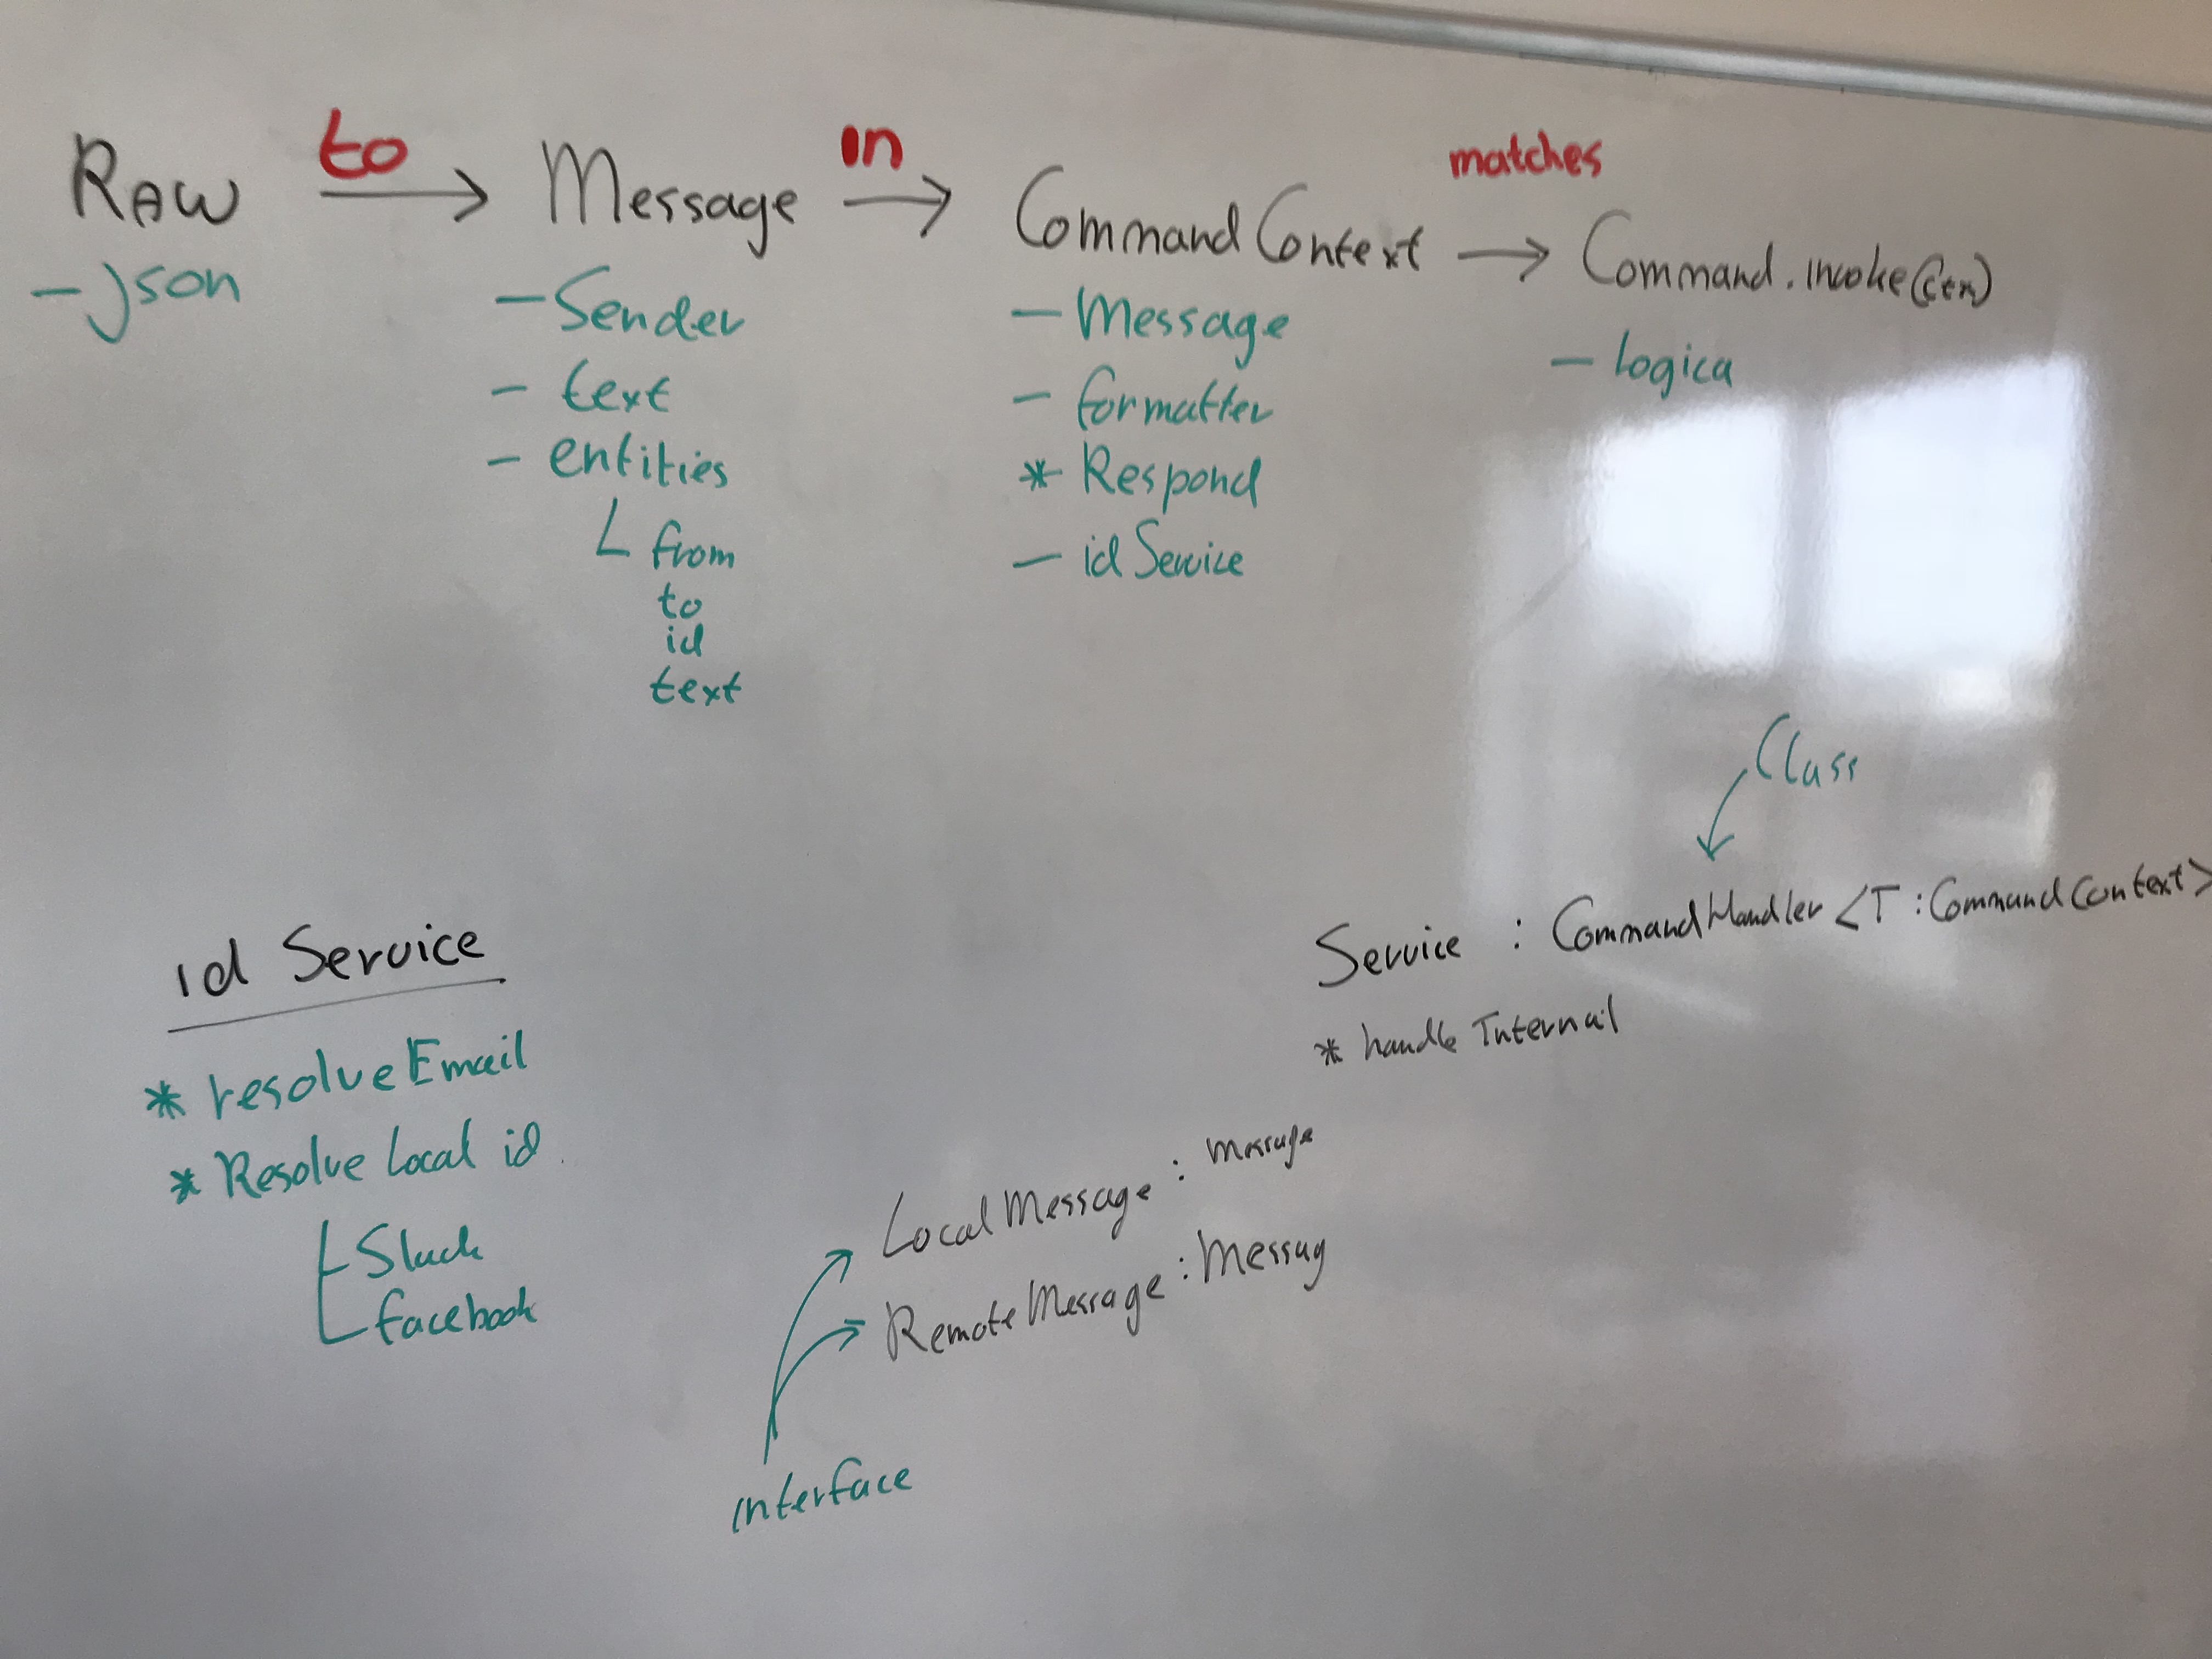 RAW to → Message in → CommandContext matches → Command.invoke(
- json
- Sender
- text
- entities
└ from
to
id
text
- Message
- formatter
* Respond
- idService
- logica
Class
Service : CommandHandler <T : CommandContext>
* handle Internal
id Service
* resolveEmail
* Resolve Local id
├ Slack
└ facebook
LocalMessage : Message
RemoteMessage : Messag
interface